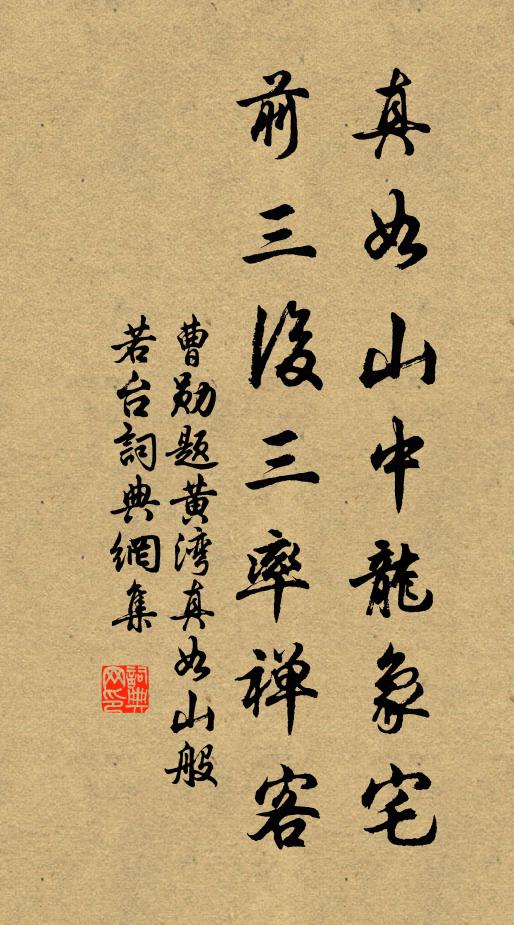 真如山中龍象宅
前三後三率禅客
曹勋題黄湾真如山般
若台詞典網集
詞典
网印